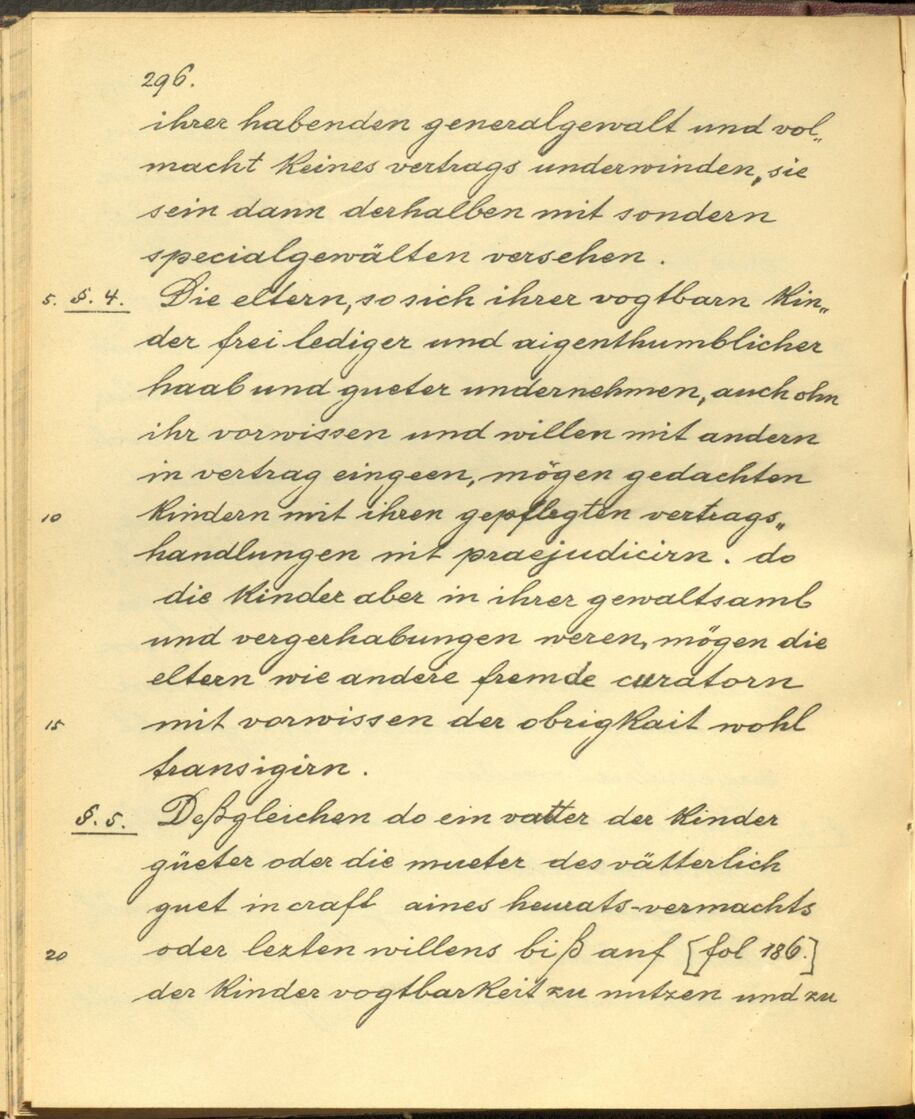 296.
ihrer habenden generalgewalt und vol„
macht keines vertrags underwinden, sie
sein dann derhalben mit sondern
specialgewälten versehen.
5. §. 4. Die eltern, so sich ihrer vogtbarn kin„
der frei lediger und aigenthumblicher
haab und gueter undernehmen, auch ohn
ihr vorwissen und willen mit andern
in vertrag eingeen, mögen gedachten
10 kindern mit ihren gepflegten vertrags„
handlungen nit praejudicirn. do
die kinder aber in ihrer gewaltsamb
und vergerhabungen weren, mögen die
eltern wie andere fremde curatorn
15 mit vorwissen der obrigkait wohl
transigirn.
§. 5. Deßgleichen do ein vatter der kinder
güeter oder die mueter des vätterlich
guet in craft aines heurats-vermachts
20 oder lezten willens biß auf [fol 186.]
der kinder vogtbarkeit zu nutzen und zu